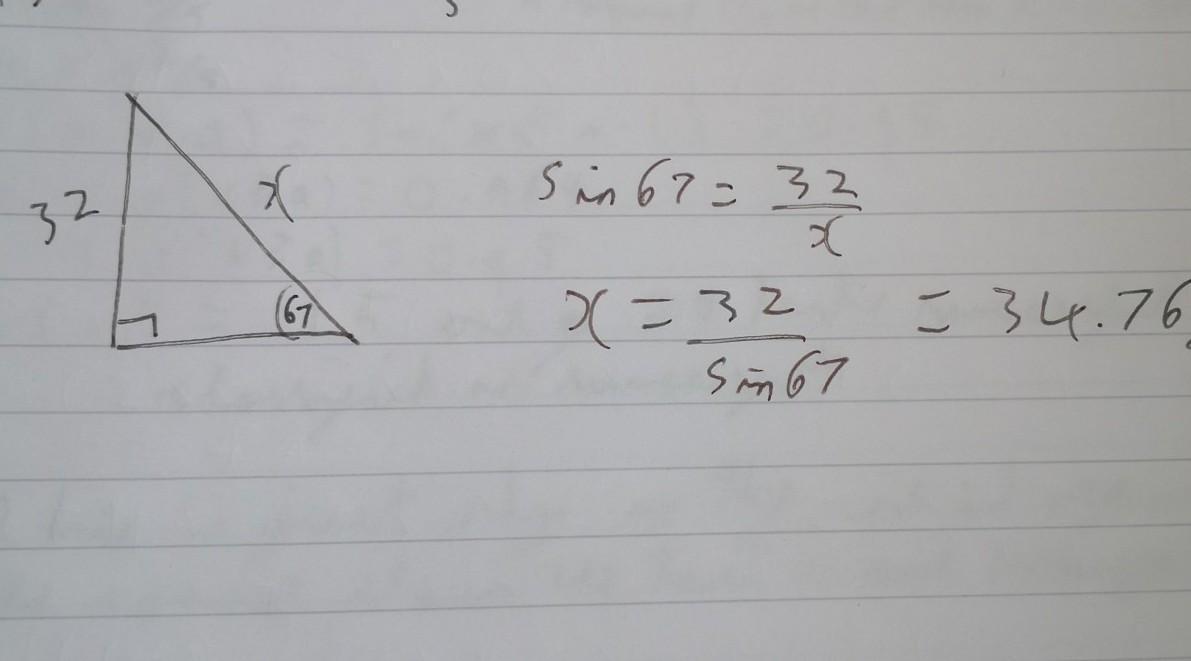 32
x
67
sin 67 = 32/x
x = 32/sin 67 = 34.76